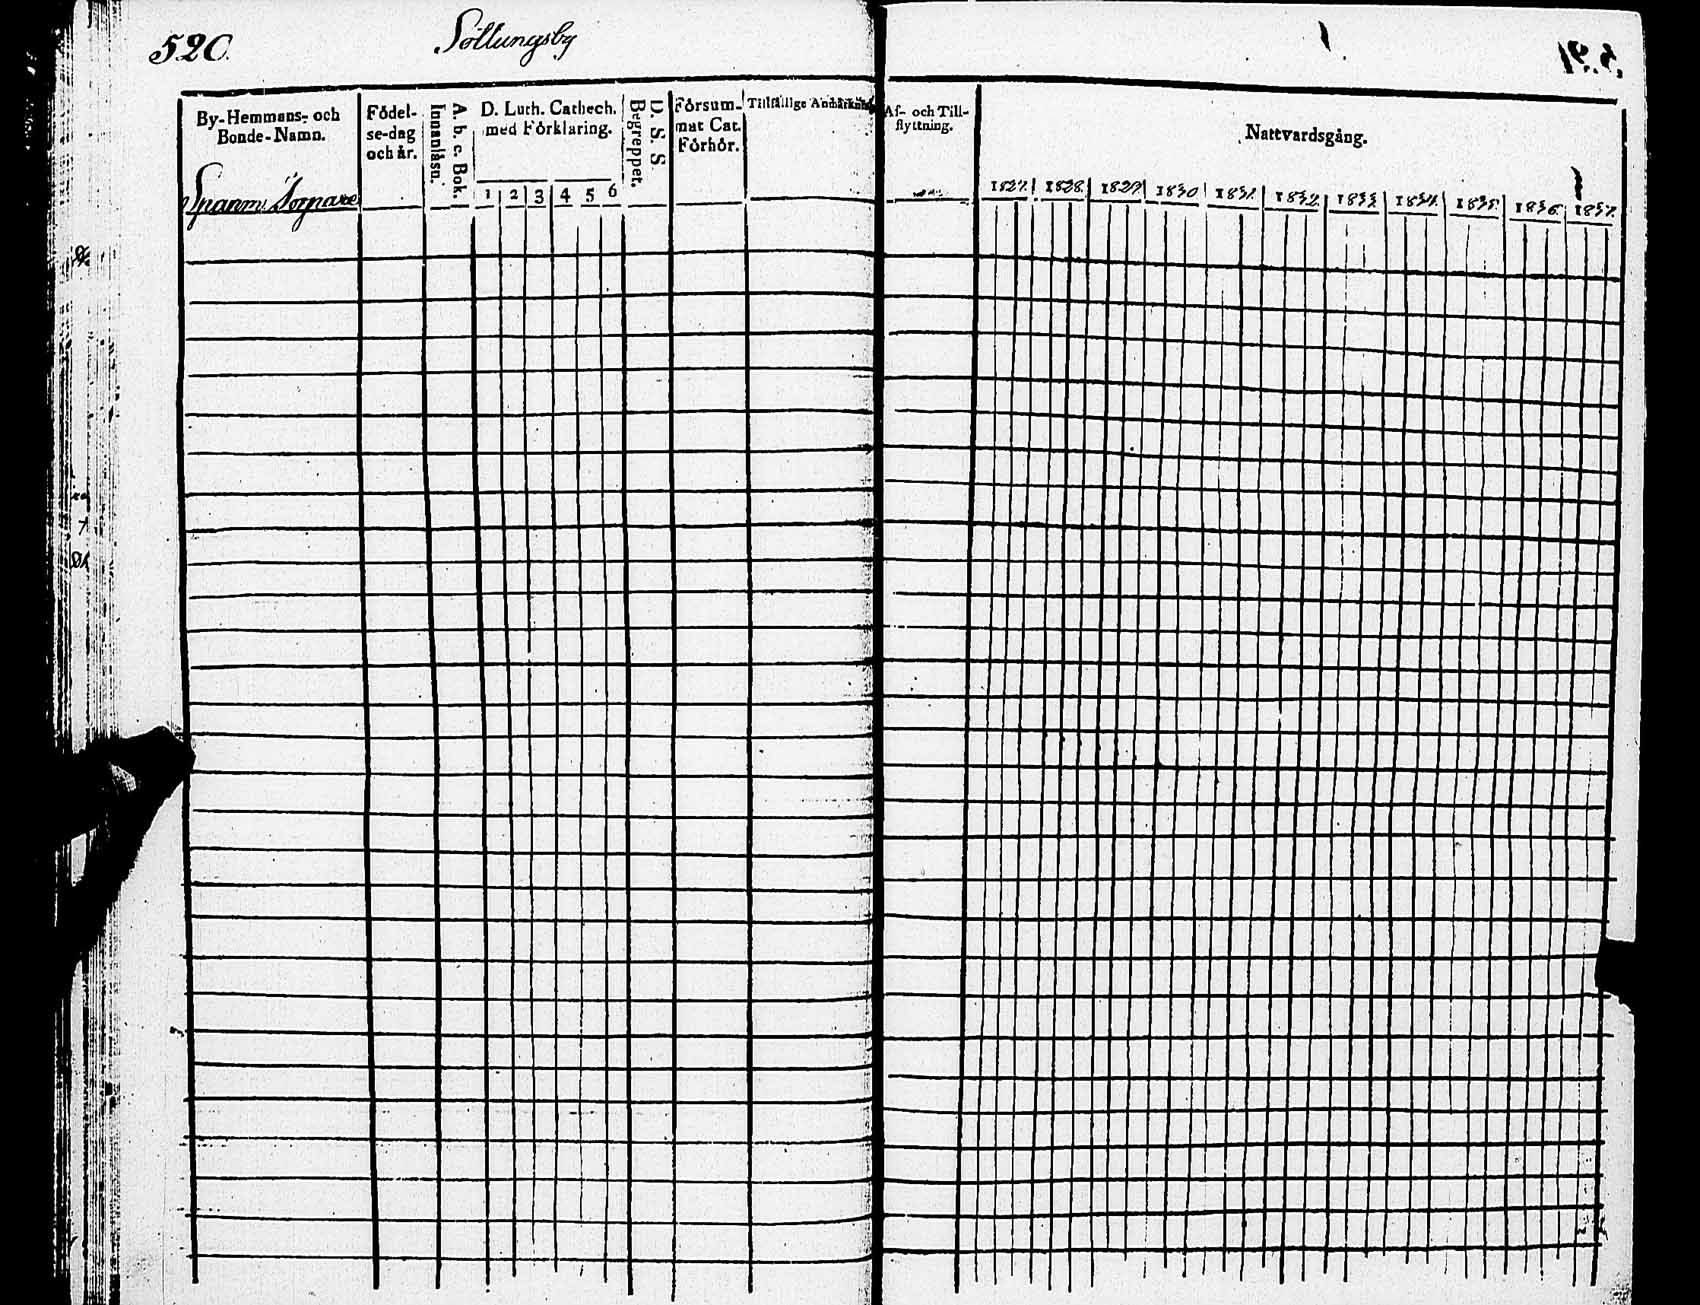 520.
Sottungsby
By-Hemmans- och
Bonde-Namn.
Födel-
se-dag
och år.
A. b. c. Bok.
Innanläsn.
D. Luth. Cathech.
med Förklaring.
1 2 3 4 5 6
D. S. S.
Begreppet.
Försum-
mat Cat.
Förhör.
Tillfällige Anmärkning
Af- och Till-
flyttning.
Nattvardsgång.
1827. 1828. 1829. 1830 1831. 1832. 1833. 1834. 1835. 1836. 1837.